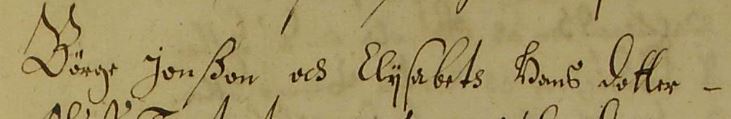 Börge Jonßon och Elÿsabetz Hans dotter -